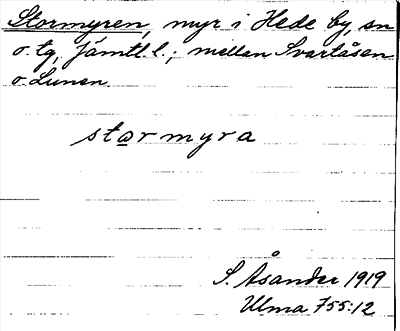 Stormyren, myr i Hede by, sn
o. tg, Jämtl. l.; mellan Svartåsen
o. Lunen.
stɷrmyra
S. Åsander 1919
Ulma 755:12